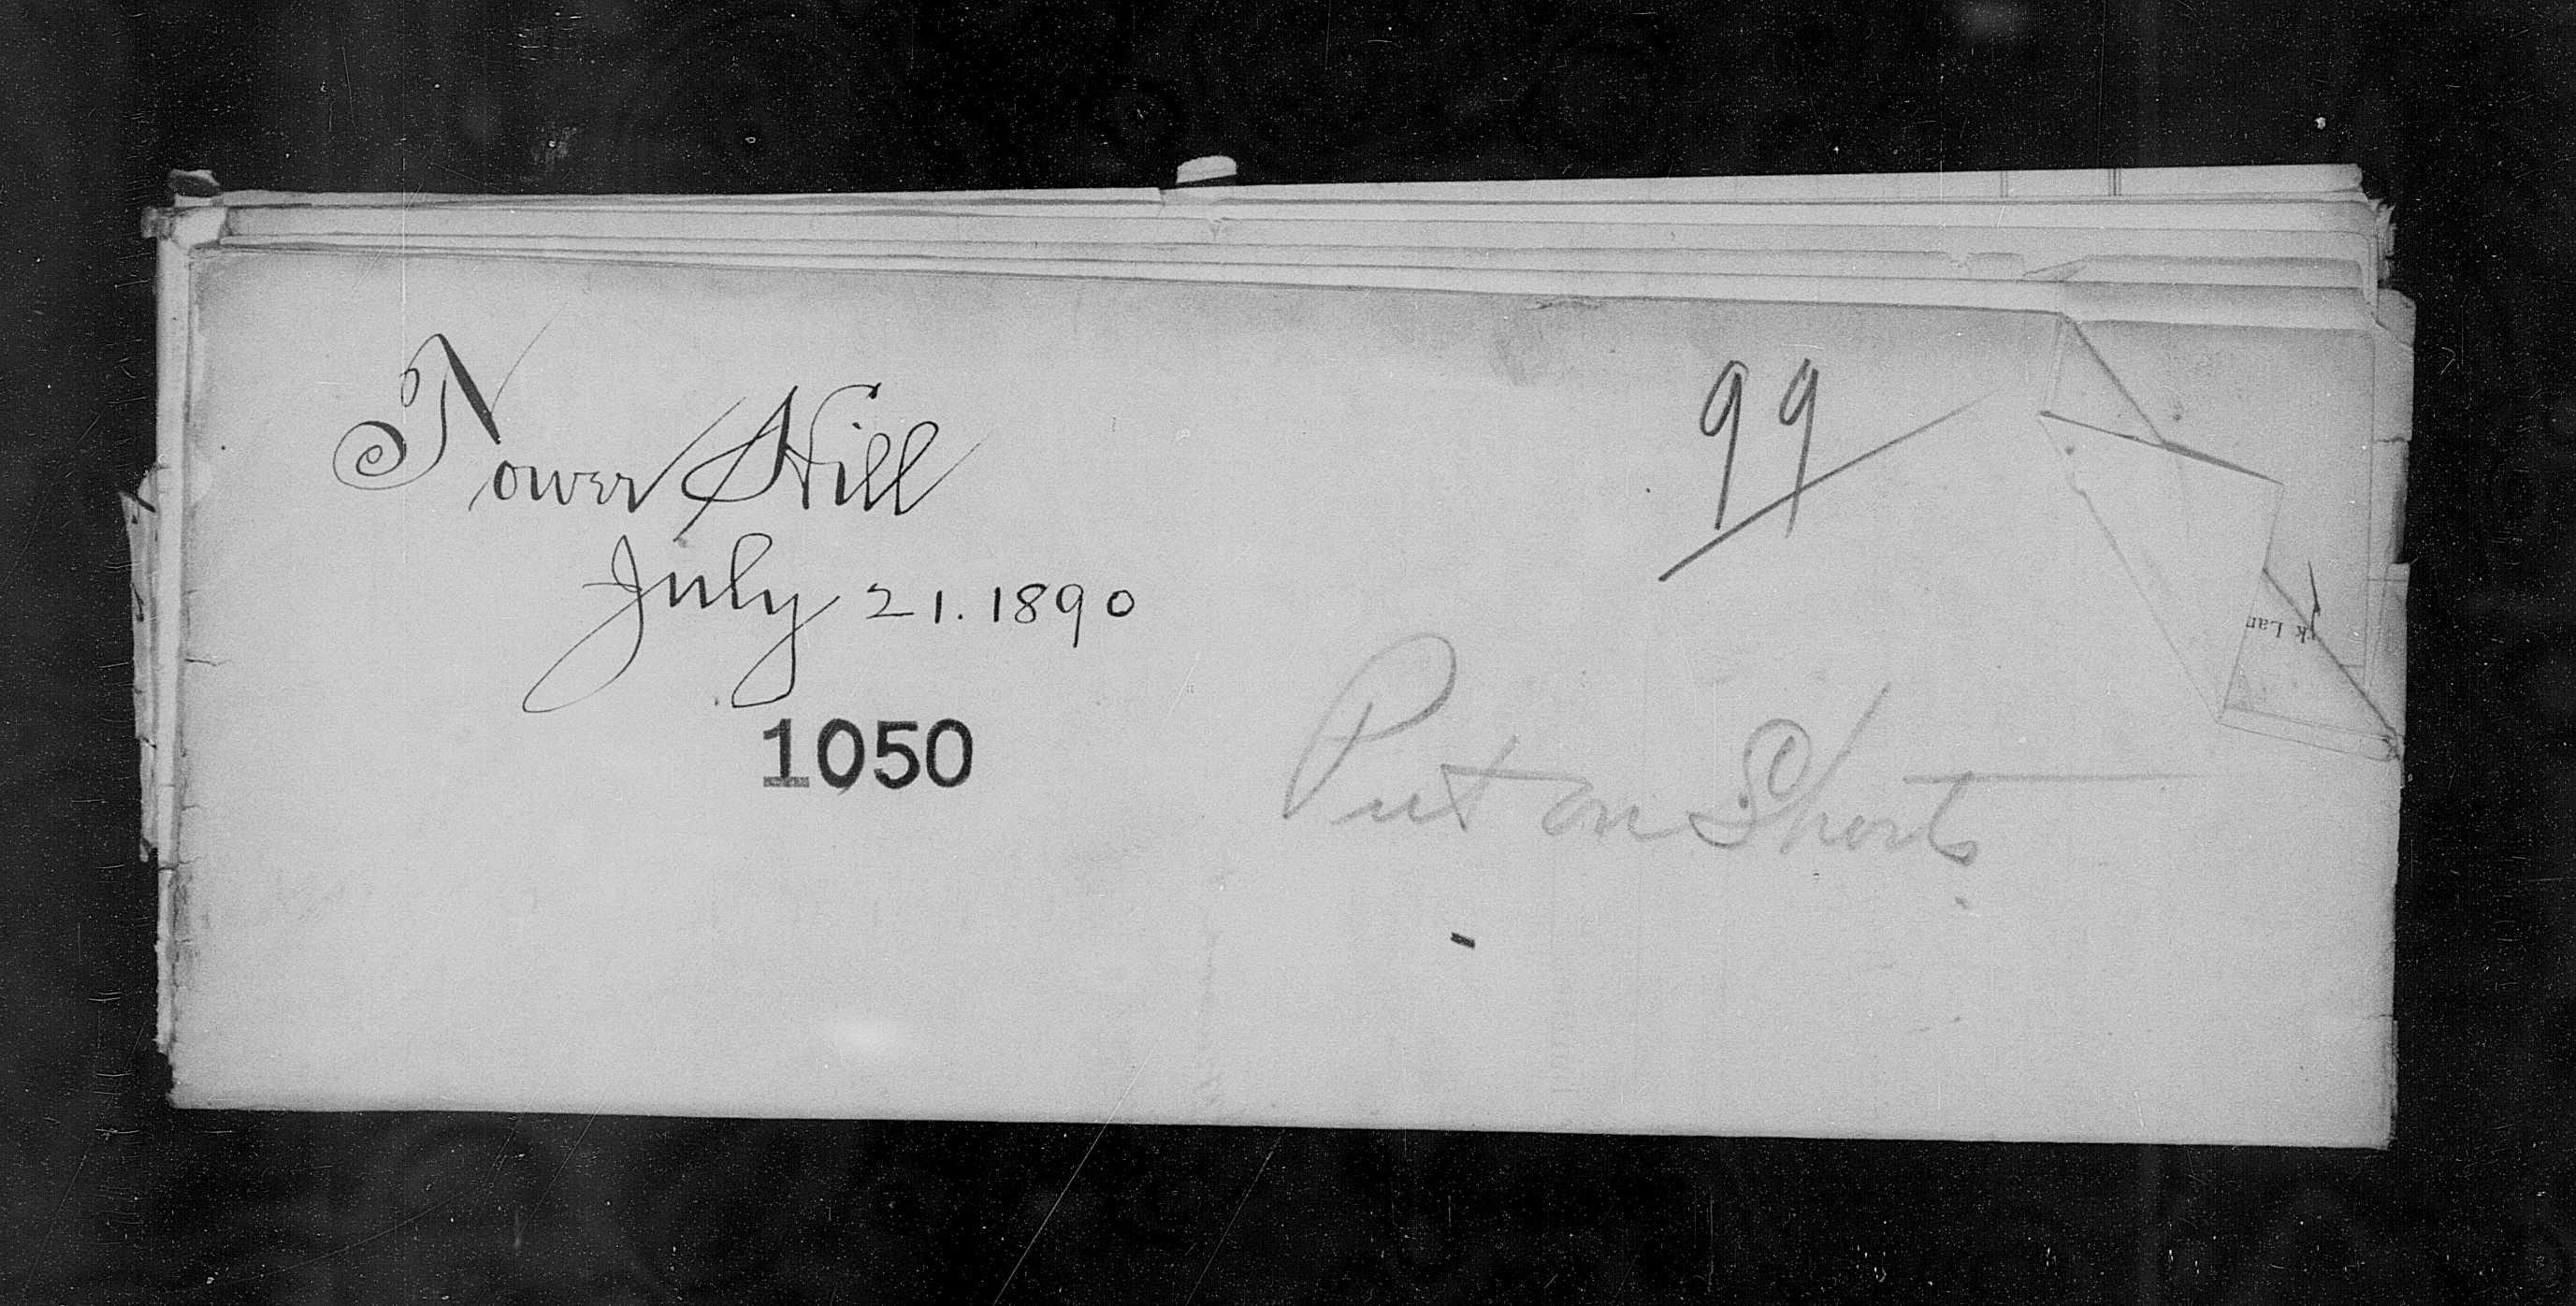 Tower Hill
July 21. 1890
1050
99
Put on Shorts
rk Lar